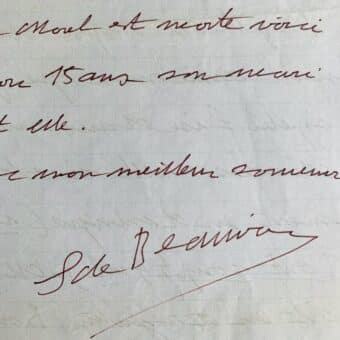 Morel est morte voici
15 ans son mari
elle.
mon meilleur souvenir
S de Beauvoir